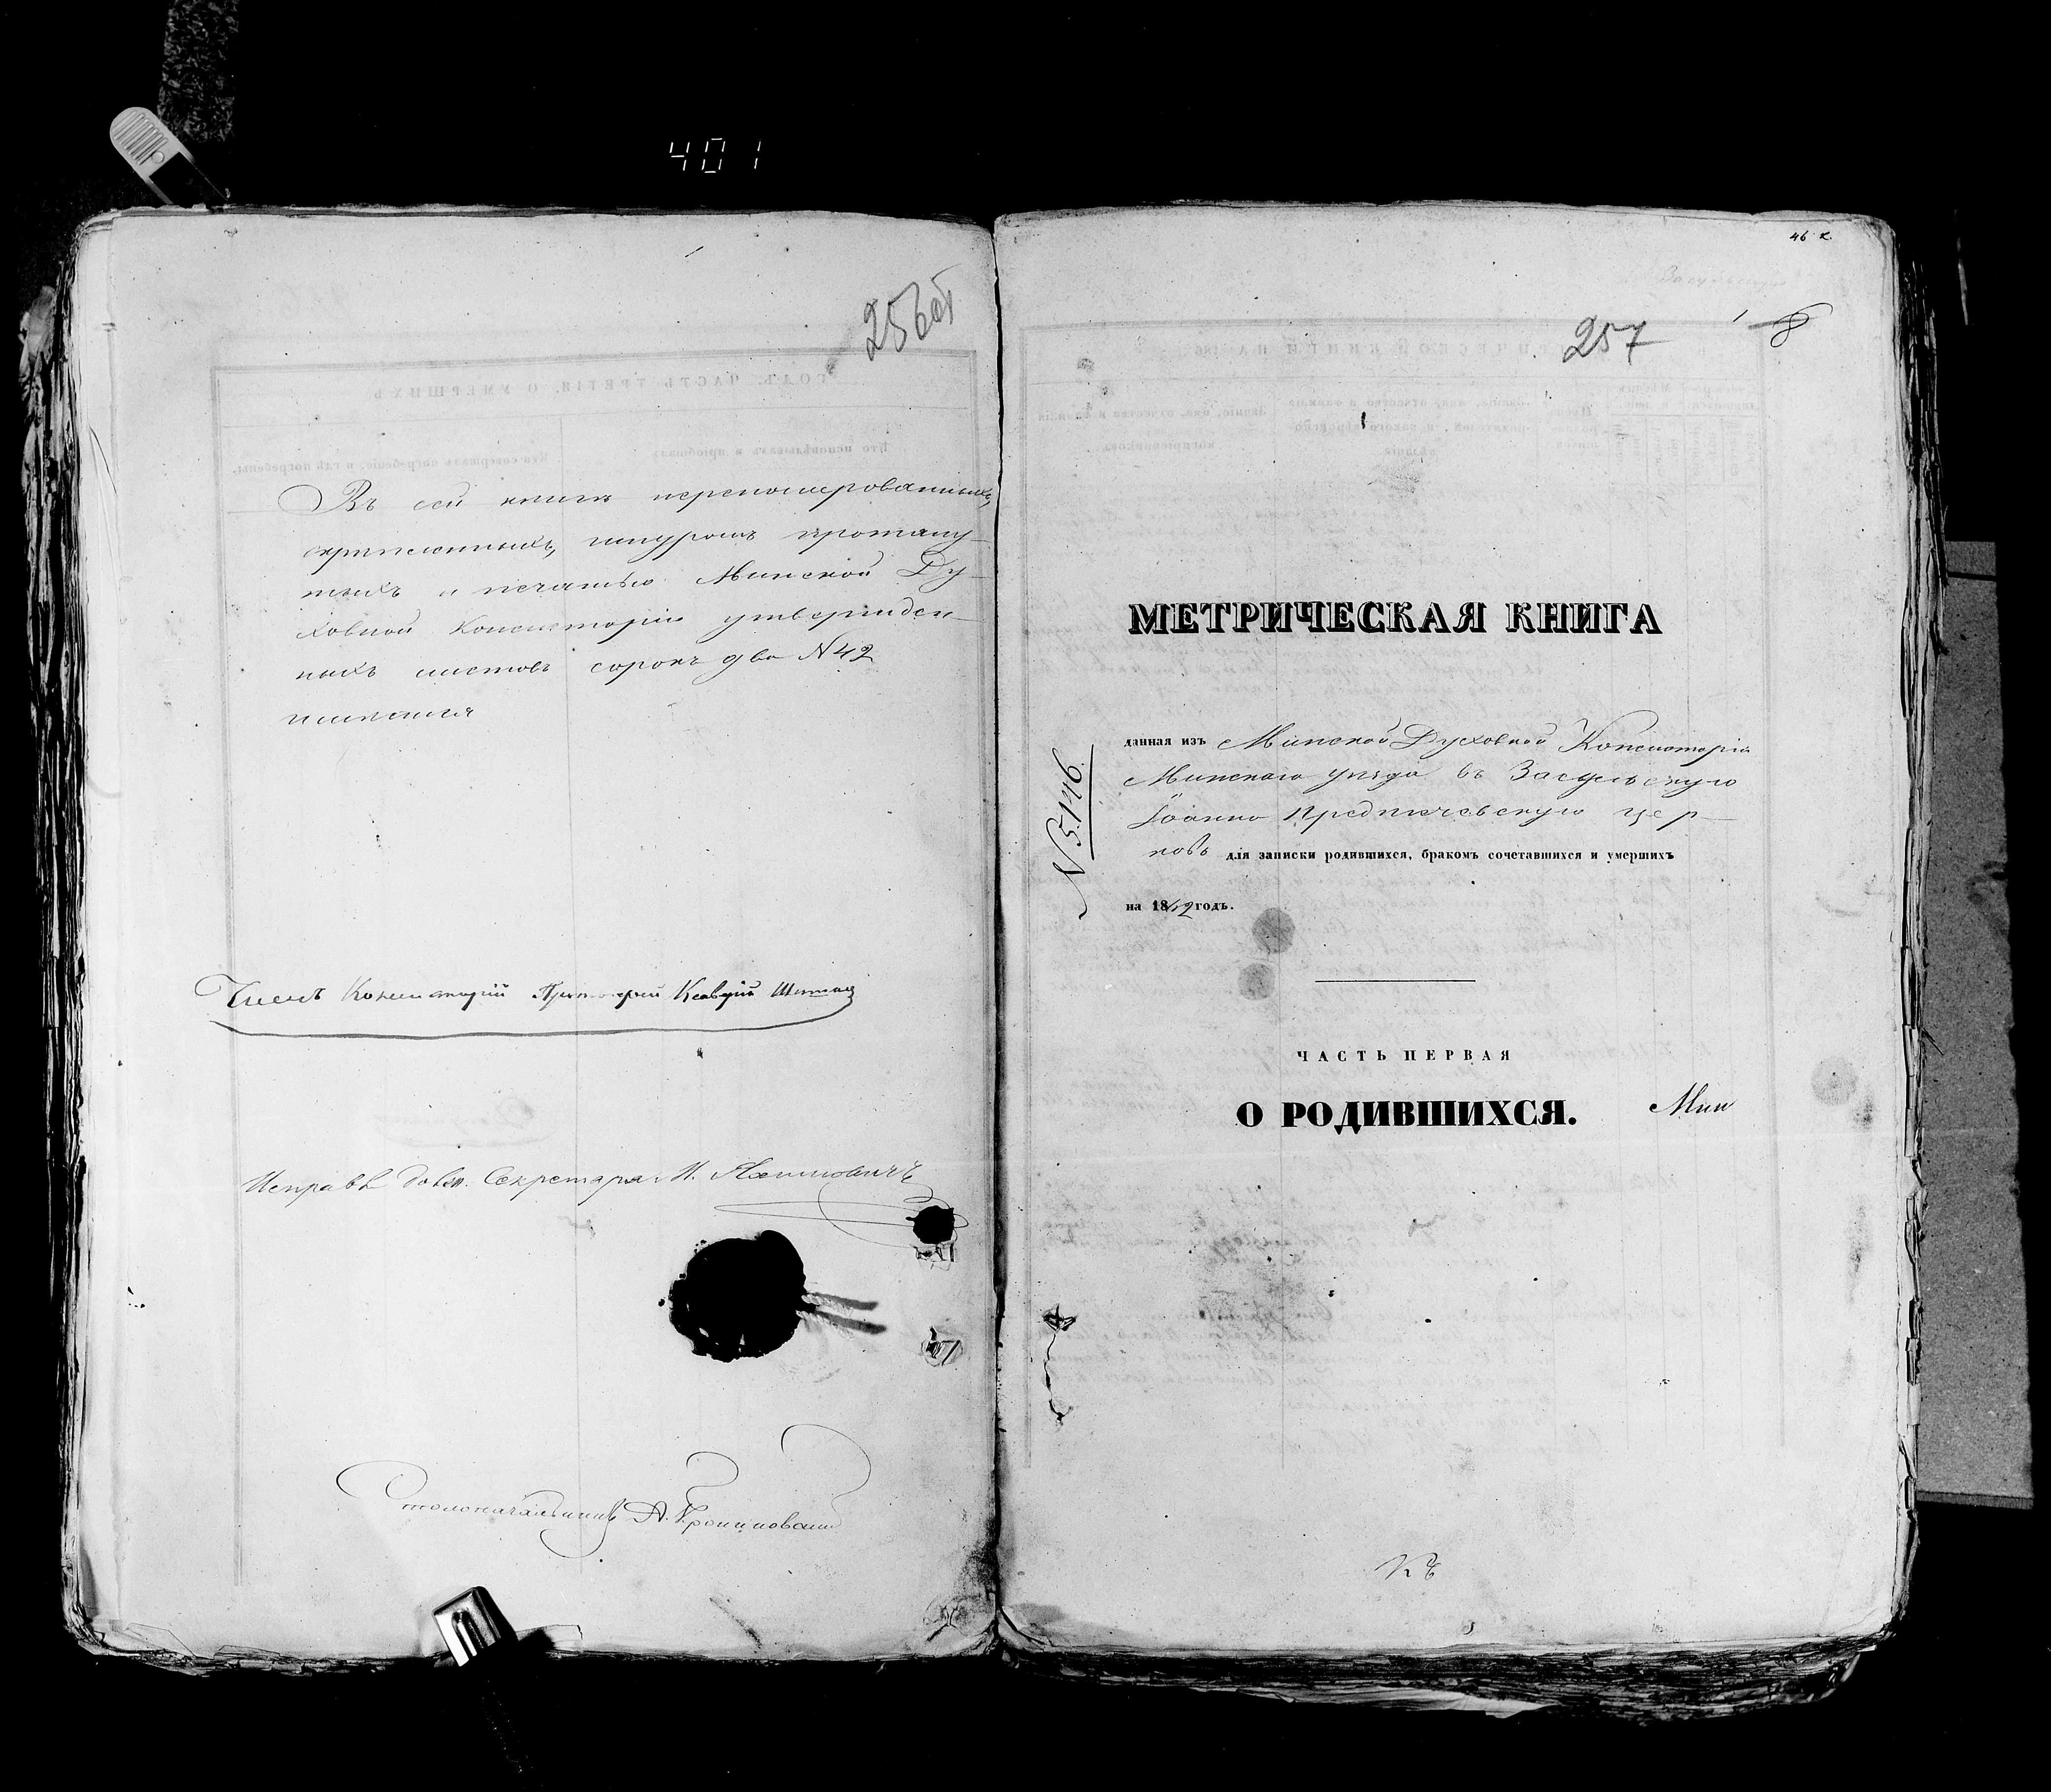 401
256 об
Въ сей книгѣ перенумерованныхъ,
скрѣпленныхъ, шнуромъ протяну-
тыхъ и печатью Минской Ду-
ховной Консисторіи утвержден-
ныхъ листовъ сорокъ два N 42
Членъ Консисторіи Протоіерей
Исправ. долж. Секретаря
Столоначальникъ А.
46
257
8
МЕТРИЧЕСКАЯ КНИГА
N 5146.
данная изъ Минской Духовной Консисторіи
Минскаго уѣзда въ Засульскую
Іоанно Предтечевскую цер-
ковь для записки родившихся, бракомъ сочетавшихся и умершихъ
на 18 годъ.
ЧАСТЬ ПЕРВАЯ
О РОДИВШИХСЯ.
Мин